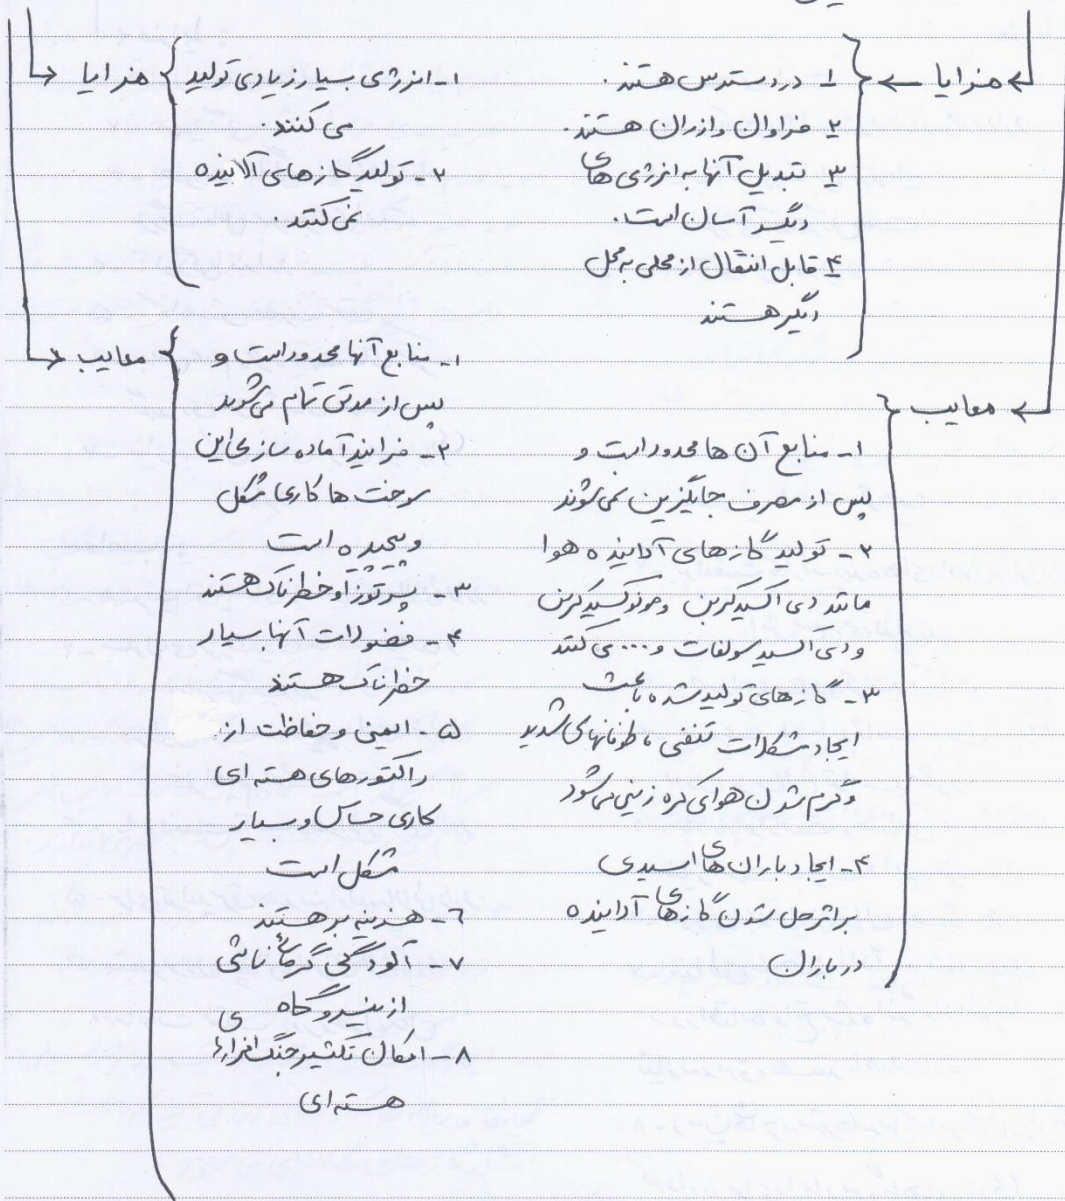 مزایا
۱ـ در دسترس هستند.
۲ـ فراوان و ارزان هستند.
۳ـ تبدیل آنها به انرژی های
دیگر آسان است.
۴ـ قابل انتقال از محلی به محل
دیگر هستند
معایب
۱ـ منابع آن ها محدود است و
پس از مصرف جایگزین نمی شوند
۲ـ تولید گازهای آلاینده هوا
مانند دی اکسید کربن و مونوکسید کربن
و دی اکسید سولفات و ... می کنند
۳ـ گازهای تولید شده باعث
ایجاد مشکلات تنفسی ، طوفانهای شدید
و گرم شدن هوای کره زمین می شود
۴ـ ایجاد باران های اسیدی
بر اثر حل شدن گازهای آلاینده
در باران
مزایا
۱ـ انرژی بسیار زیادی تولید
می کنند
۲ـ تولید گازهای آلاینده
نمی کنند.
معایب
۱ـ منابع آنها محدود است و
پس از مدتی تمام می شوند
۲ـ فرایند آماده سازی این
سوخت ها کاری مشکل
و پیچیده است
۳ـ پرتوزا و خطرناک هستند
۴ـ فضولات آنها بسیار
خطرناک هستند
۵ـ ایمنی و حفاظت از
راکتورهای هسته ای
کاری حساس و بسیار
مشکل است
۶ـ هزینه بر هستند
۷ـ آلودگی گرمائی ناشی
از نیروگاه
۸ـ امکان تکثیر جنگ افزارهای
هسته ای